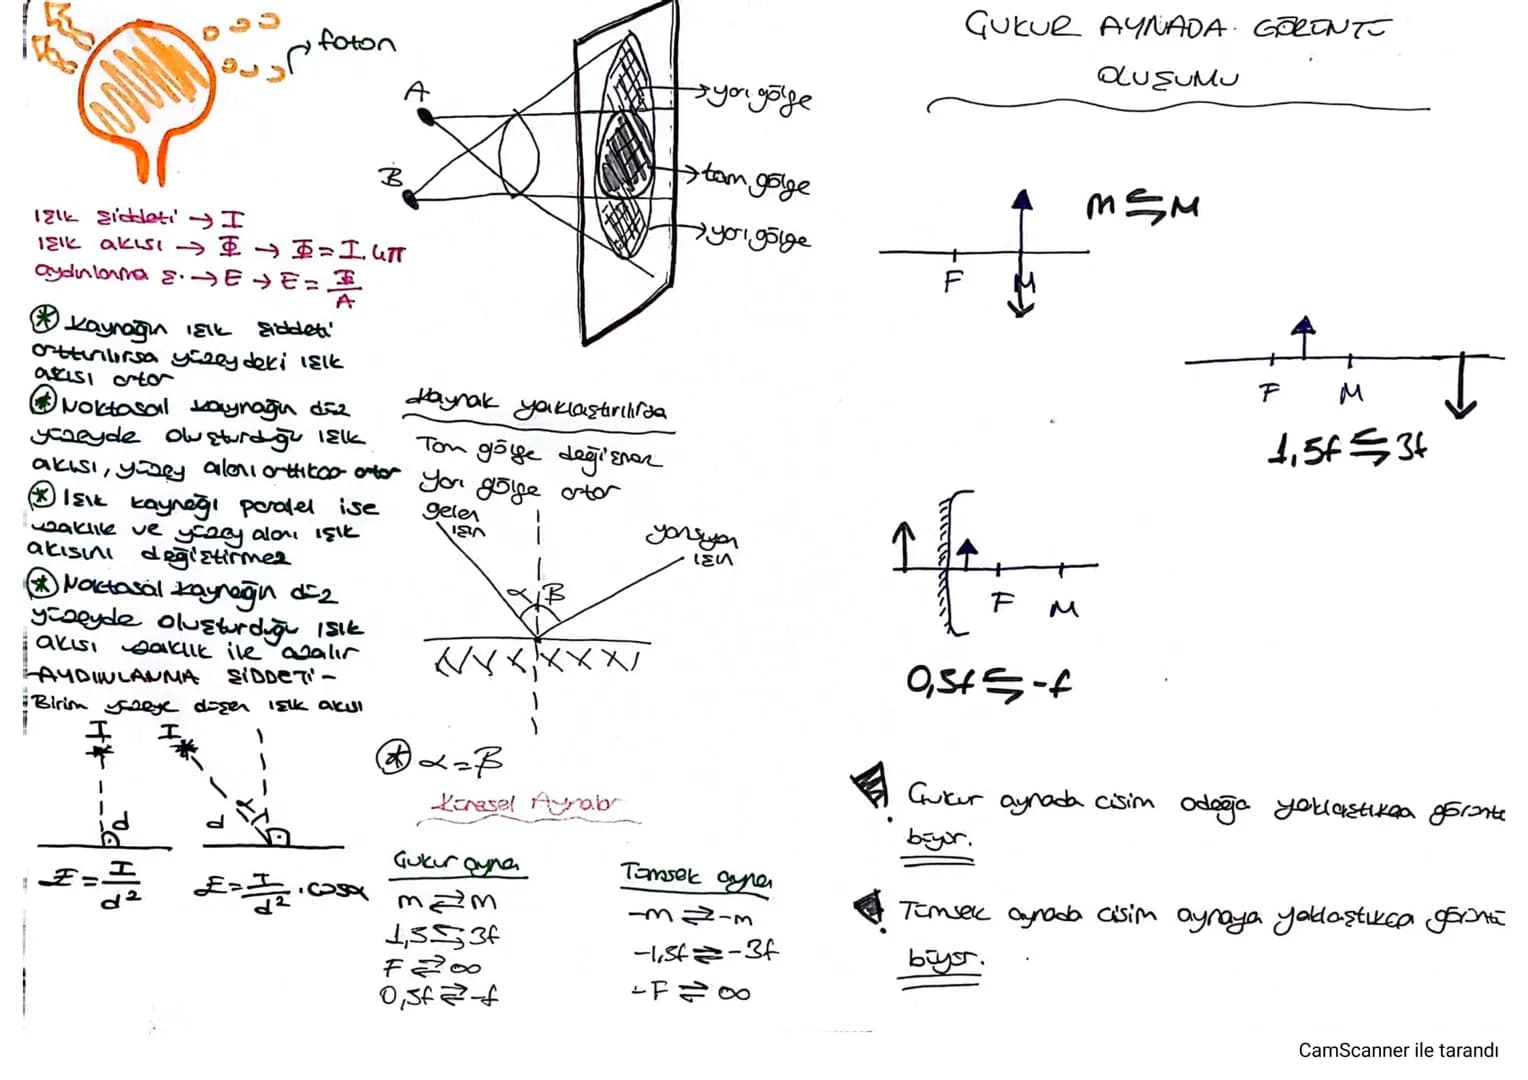 foton
A
B
yarı gölge
tam gölge
yarı gölge
Işık şiddeti → I
Işık akısı → Φ → Φ = I.4π
aydınlanma ş. → E → E = Φ/A
* Kaynağın ışık şiddeti
arttırılırsa yüzeydeki ışık
akısı artar
* Noktasal kaynağın düz
yüzeyde oluşturduğu ışık
akısı, yüzey alanı arttıkça artar
* Işık kaynağı paralel ise
uzaklık ve yüzey alanı ışık
akısını değiştirmez
* Noktasal kaynağın düz
yüzeyde oluşturduğu ışık
akısı uzaklık ile azalır
-AYDINLANMA ŞİDDETİ-
Birim yüzeye düşen ışık akısı
I
I
d
d
α
E = I/d²
E = I/d² . cosα
Kaynak yaklaştırılırsa
Tam gölge değişmez
Yarı gölge artar
gelen
ışın
yansıyan
ışın
α
B
* α = B
Küresel Aynalar
Çukur ayna
m ⇄ m
1,5 ⇆ 3f
F ⇄ ∞
0,5f ⇄ -f
Tümsek ayna
-m ⇄ -m
-1,5f ⇄ -3f
-F ⇄ ∞
ÇUKUR AYNADA GÖRÜNTÜ
OLUŞUMU
m ⇆ M
F
M
F
M
1,5f ⇆ 3f
F
M
0,5f ⇆ -f
Çukur aynada cisim odağa yaklaştıkça görüntü
büyür.
Tümsek aynada cisim aynaya yaklaştıkça görüntü
büyür.
CamScanner ile tarandı